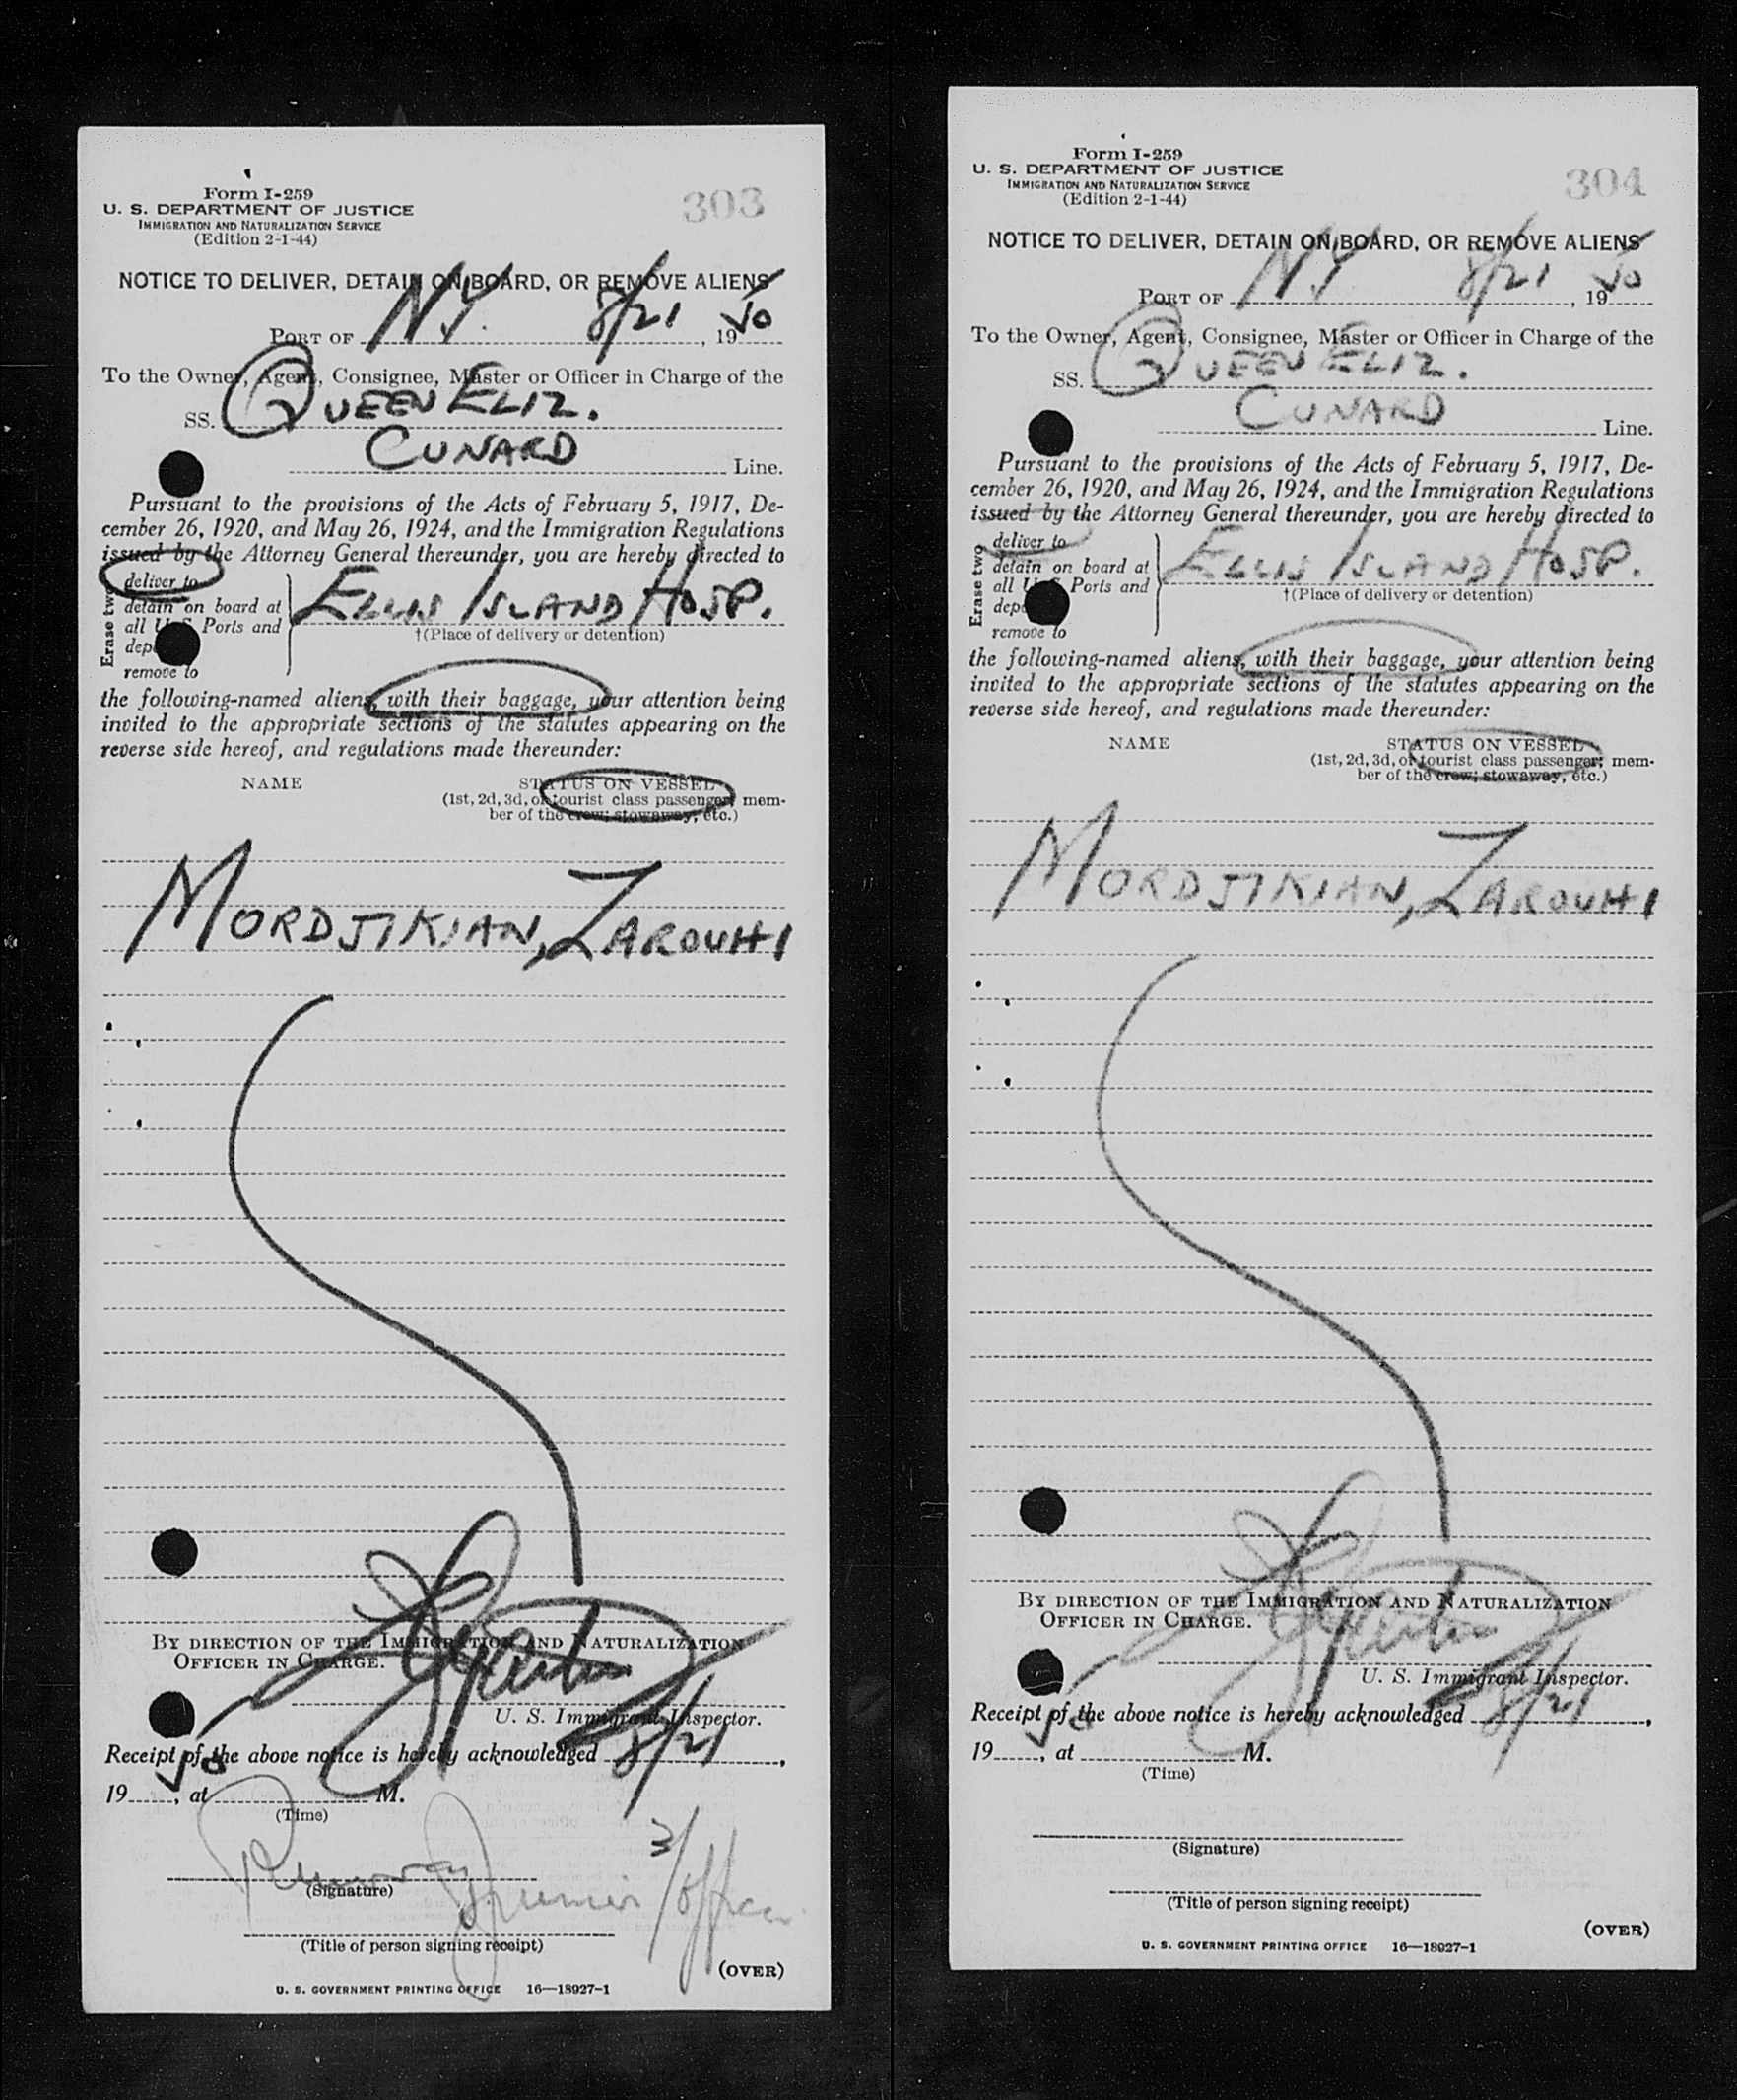 303
Form I-259
U. S. DEPARTMENT OF JUSTICE
IMMIGRATION AND NATURALIZATION SERVICE
(Edition 2-1-44)
NOTICE TO DELIVER, DETAIN ON BOARD, OR REMOVE ALIENS
PORT OF N.Y. 8/21, 1950
To the Owner, Agent, Consignee, Master or Officer in Charge of the
SS. QUEEN ELIZ.
CUNARD Line.
Pursuant to the provisions of the Acts of February 5, 1917, De-
cember 26, 1920, and May 26, 1924, and the Immigration Regulations
issued by the Attorney General thereunder, you are hereby directed to
Erase two
deliver to
detain on board at
all U. S. Ports and
dep
remove to
ELLIS ISLAND HOSP.
†(Place of delivery or detention)
the following-named aliens, with their baggage, your attention being
invited to the appropriate sections of the statutes appearing on the
reverse side hereof, and regulations made thereunder:
NAME STATUS ON VESSEL
(1st, 2d, 3d, or tourist class passenger; mem-
ber of the crew; stowaway, etc.)
MORDJIKIAN, ZAROUHI
BY DIRECTION OF THE IMMIGRATION AND NATURALIZATION
OFFICER IN CHARGE.
U. S. Immigrant Inspector.
Receipt of the above notice is hereby acknowledged 8/21,
1950, at M.
(Time)
(Signature)
Junior 3/Officer
(Title of person signing receipt)
(OVER)
U. S. GOVERNMENT PRINTING OFFICE 16—18927-1
304
Form I-259
U. S. DEPARTMENT OF JUSTICE
IMMIGRATION AND NATURALIZATION SERVICE
(Edition 2-1-44)
NOTICE TO DELIVER, DETAIN ON BOARD, OR REMOVE ALIENS
PORT OF N.Y. 8/21, 1950
To the Owner, Agent, Consignee, Master or Officer in Charge of the
SS. QUEEN ELIZ.
CUNARD Line.
Pursuant to the provisions of the Acts of February 5, 1917, De-
cember 26, 1920, and May 26, 1924, and the Immigration Regulations
issued by the Attorney General thereunder, you are hereby directed to
Erase two
deliver to
detain on board at
all U. S. Ports and
dep
remove to
ELLIS ISLAND HOSP.
†(Place of delivery or detention)
the following-named aliens, with their baggage, your attention being
invited to the appropriate sections of the statutes appearing on the
reverse side hereof, and regulations made thereunder:
NAME STATUS ON VESSEL
(1st, 2d, 3d, or tourist class passenger; mem-
ber of the crew; stowaway, etc.)
MORDJIKIAN, ZAROUHI
BY DIRECTION OF THE IMMIGRATION AND NATURALIZATION
OFFICER IN CHARGE.
U. S. Immigrant Inspector.
Receipt of the above notice is hereby acknowledged 8/21,
1950, at M.
(Time)
(Signature)
(Title of person signing receipt)
(OVER)
U. S. GOVERNMENT PRINTING OFFICE 16—18927-1